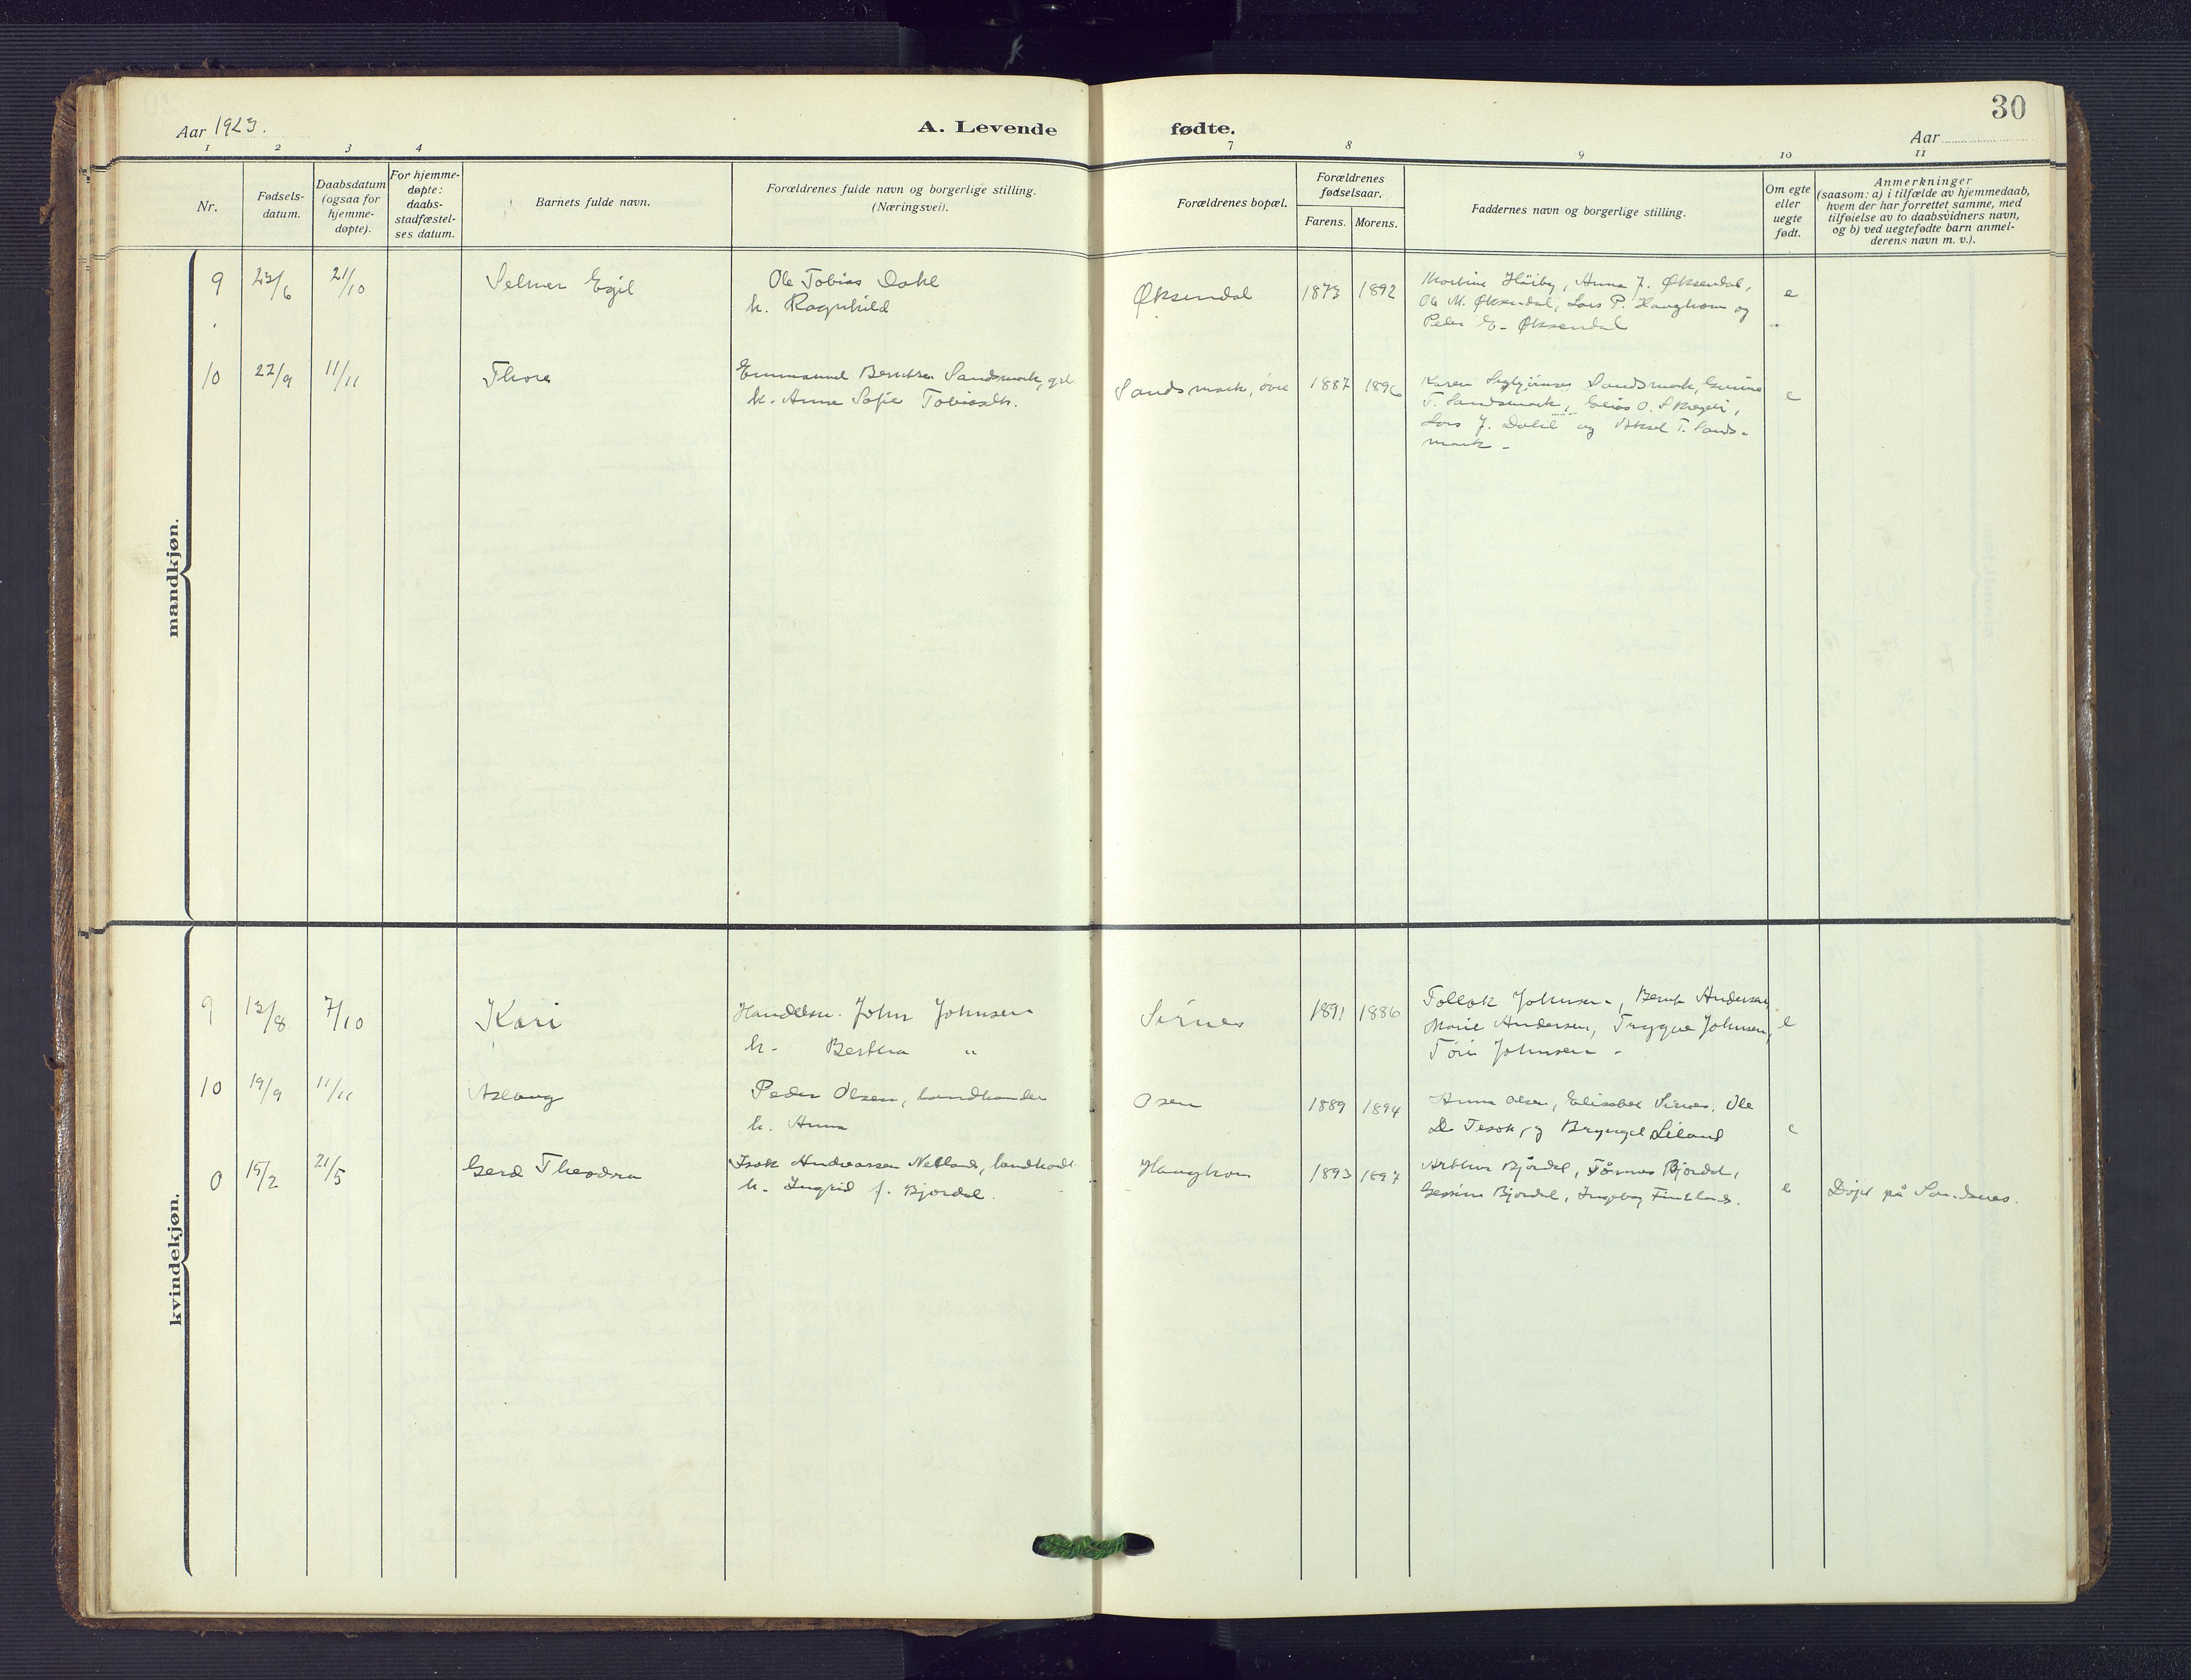 30
Aar 1923.
A. Levende fødte.
Aar
1 2 3 4 7 8 9 10 11
Nr.
Fødsels-
datum.
Daabsdatum
(ogsaa for
hjemme-
døpte).
For hjemme-
døpte:
daabs-
stadfæstel-
ses datum.
Barnets fulde navn.
Forældrenes fulde navn og borgerlige stilling.
(Næringsvei).
Forældrenes bopæl.
Forældrenes
fødselsaar.
Farens. Morens.
Faddernes navn og borgerlige stilling.
Om egte
eller
uegte
født.
Anmerkninger
(saasom: a) i tilfælde av hjemmedaab,
hvem der har forrettet samme, med
tilføielse av to daabsvidners navn,
og b) ved uegtefødte barn anmel-
derens navn m. v.).
mandkjøn.
9 23/6 21/10 Selmer Egil
Ole Tobias Dahl
h. Ragnhild
Øksendal 1873 1892
Martine Höiby, Anna J. Øksendal,
Ole M. Øksendal, Lars P. Haughom og
Peder E. Øksendal
e
10 22/9 11/11 Thore
Emmanuel Berntsen Sandsmark,
h. Anne Sofie Tobiasdtr.
Sandsmark, övre 1887 1896
Karen Sandsmark,
T. Sandsmark, Elias O.
Lars J. Dahl og Aksel T. Sands-
mark -
e
kvindekjøn.
9 13/8 7/10 Kari
Handelsm. John Johnsen
h. Bertha "
Sirnes 1891 1886
Tollak Johnsen, Bernt Andersen,
Marie Andersen, Trygve Johnsen,
Johnsen -
e
10 19/9 11/11 Aslaug
Peder Olsen, landhandler
h. Anna
Osen 1889 1894
Anna Olsen, Elisabet Sirnes, Ole
D. Tesok, og Bryngel Liland
e
0 15/2 21/5 Gerd Theodora
Isak Andreassen Netland, landhandl.
h. Ingrid f. Bjordal.
Haughom 1893 1897
Arthur Bjordal, Tönnes Bjordal,
Gesine Bjordal, Ingeborg Fintland.
e
Döpt på Sandnes.